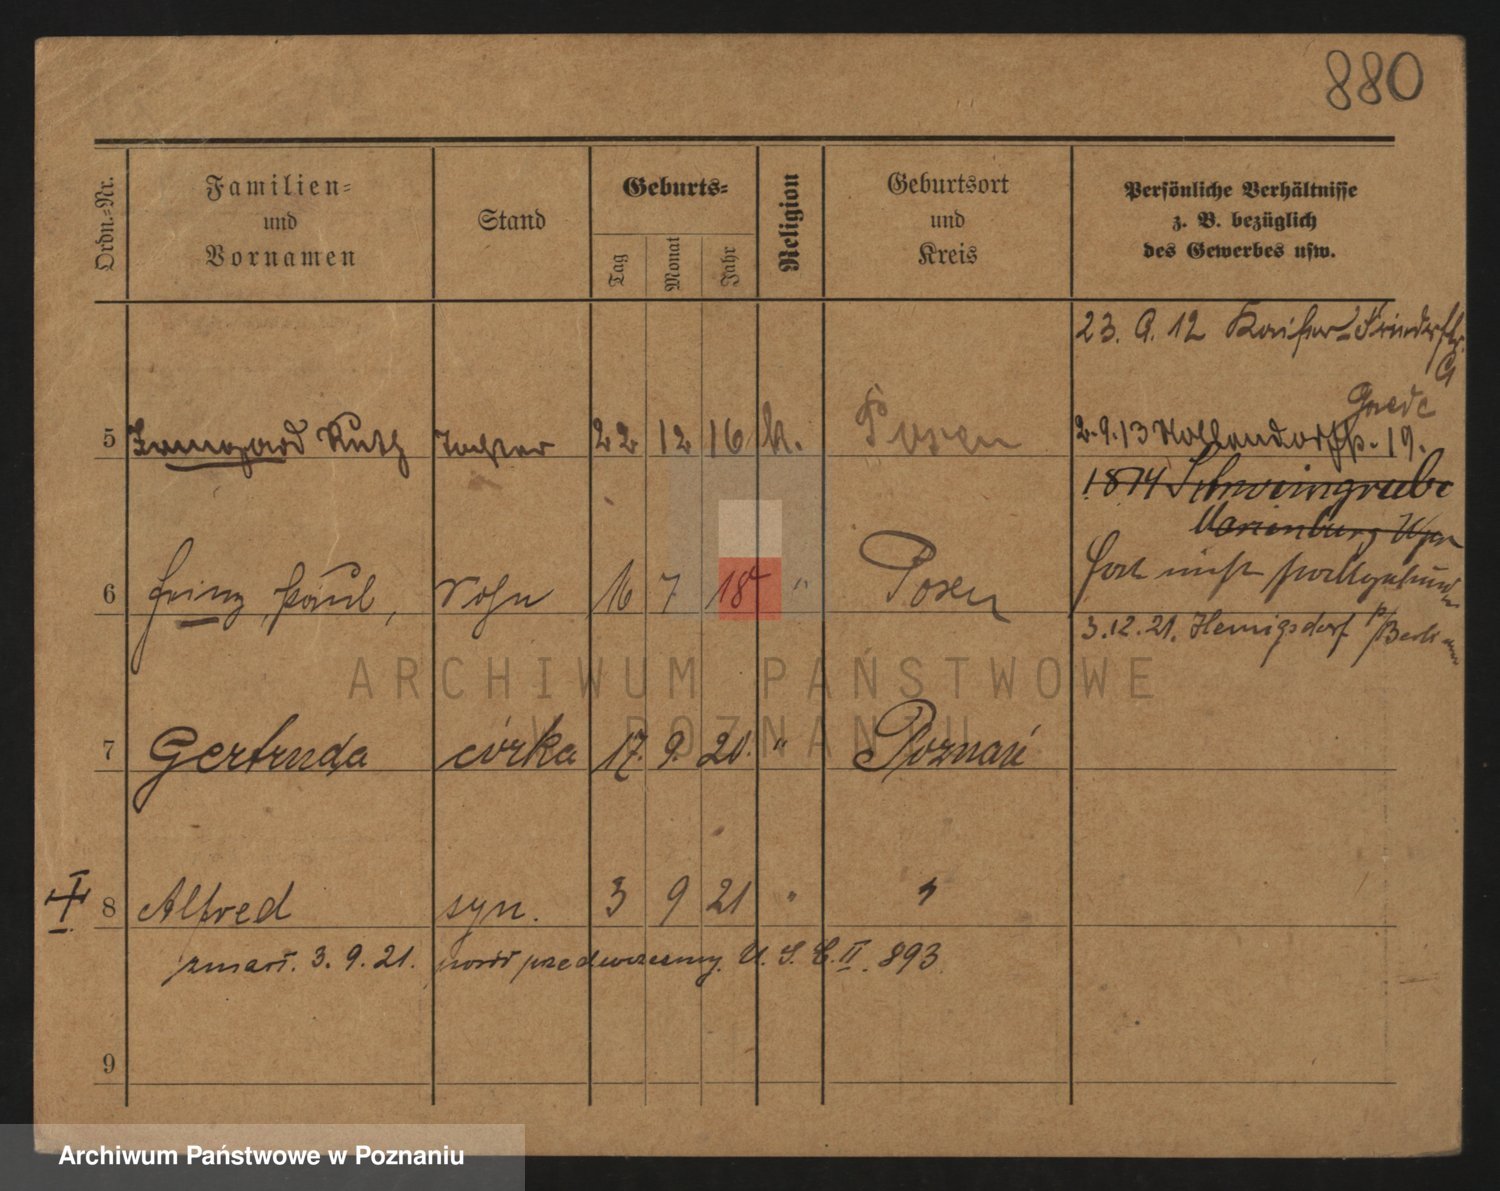 880
Ordn.-Nr.
Familien-
und
Vornamen
Stand
Geburts-
Tag
Monat
Jahr
Religion
Geburtsort
und
Kreis
Persönliche Verhältnisse
z. B. bezüglich
des Gewerbes usw.
23. 9. 12 Kaiser-Friedrichstr.
5 Irmgard Ruth Tochter 22 12 16 k. Posen
2.9.13 19.
Marienburg Wpr
6 Heinz, Paul, Sohn 16 7 18 " Posen
hat nicht stattgefunden
3.12.21. Hennigsdorf b/Berlin
7 Gertruda córka 17. 9. 20. " Poznań
8 Alfred syn. 3 9 21 " "
zmarł. 3. 9. 21. poród przedwczesny. U. S. C. II. 893
9
ARCHIWUM PAŃSTWOWE
W POZNANIU
Archiwum Państwowe w Poznaniu